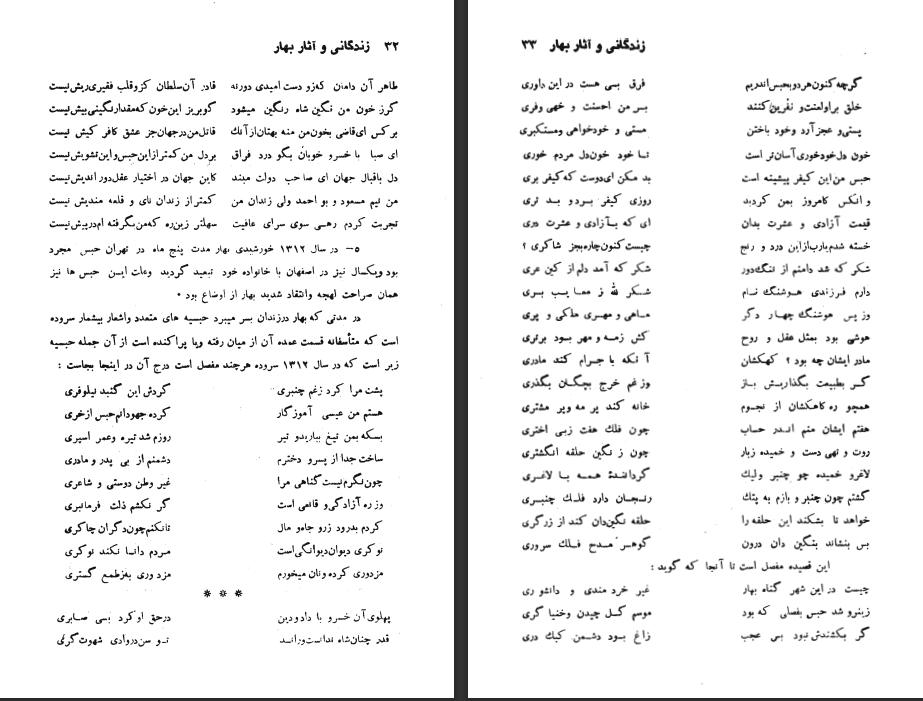 ۳۲ زندگانی و آثار بهار
طاهر آن دامان که زو دست امیدی دور نه قادر آن سلطان کز و قلب فقیری ریش نیست
گرز خون من نگین شاه رنگین میشود گو بریز این خون که مقدار نگینی بیش نیست
بر کس ای قاضی بخون من منه بهتان از آنك قاتل من در جهان جز عشق کافر کیش نیست
ای صبا با خسرو خوبان بگو درد فراق بر دل من کمتر از این حبس و این تشویش نیست
دل باقبال جهان ای صاحب دولت مبند کاین جهان در اختیار عقل دور اندیش نیست
من نیم مسعود و بو احمد ولی زندان من کمتر از زندان نای و قلعه مندیش نیست
تجربت کردم رهی سوی سرای عافیت سهلتر زین ره که من بگرفته ام در پیش نیست
۵ – در سال ۱۳۱۲ خورشیدی بهار مدت پنج ماه در تهران حبس مجرد
بود ویکسال نیز در اصفهان با خانواده خود تبعید گردید وعلت ایـن حبس ها نیز
همان صراحت لهجه وانتقاد شدید بهار از اوضاع بود ۰
در مدتی که بهار درزندان بسر میبرد حبسیه های متعدد واشعار بیشمار سروده
است که متأسفانه قسمت عمده آن از میان رفته ویا پراکنده است از آن جمله حبسیه
زیر است که در سال ۱۳۱۲ سروده هرچند مفصل است درج آن در اینجا بجاست :
پشت مرا کرد زغم چنبری گردش این گنبد نیلوفری
هستم من عیسی آموزگار کرده جهودانم حبس از خری
بسکه بمن تیغ بباریدو تیر روزم شد تیره وعمر اسپری
ساخت جدا از پسرو دخترم دشمنم از بی پدر و مادری
چون نگرم نیست گناهی مرا غیر وطن دوستی و شاعری
وز ره آزادگی و قانعی است گر نکشم ذلت فرمانبری
کردم بدرود زرو جاه و مال تا نکنم چون دگران چاکری
نوکری دیوان دیوانگی است مردم دانـا نکند نوکری
مزدوری کرده ونان میخورم مزدوری به ز طمع گستری
* * *
پهلوی آن خسرو با دادودین در حق او کرد بسی صـابری
قدر چنان شاه تـو سن در وادی شهوت گری
زندگانی و آثار بهار ۳۳
گرچه کنون هر دو بحبس اندریم فرق بسی هست در این داوری
خلق براو لعنت و نفرین کنند بـر من احسنت و خهی وفری
پستی و عجز آرد وخود باختن مستی و خودخواهی ومستکبری
خون دل خود خوری آسان تر است تـا خود خون دل مردم خوری
حبس من این کیفر پیشینه است بد مکن ای دوست که کیفر بری
و انکس کامروز بمن کرد بد روزی کیفر بـرد و بـد تری
قیمت آزادی و عشرت بدان ای که بـآزادی و عشرت دری
خسته شدم یارب از این درد و رنج چیست کنون چاره بجز شاکری ؟
شکر که شد دامنم از ننگ دور شکر که آمد دلم از کین عری
دارم فـرزندی هـوشنگ نـام شـکر لله ز معـایـب بـری
وز پس هوشنگ چهـار دگر مـاهی و مهـری ملکی و پری
هوشی بود بمثل عقل و روح کش زمـه و مهر بـود برتری
مادر ایشان چه بود ؟ کهکشان آنکه بـاجـرام کند مادری
گـر بطبیعت بگذاریـش بـاز وز غم خرج بچگـان بگذری
همچو ره کاهکشان از نجـوم خانه کند پر مه وپر مشتری
هفتم ایشان منم انـدر حساب چون فلك هفت زبی اختری
روت و تهی دست و خمیده زبار چون ز نگین حلقه انگشتری
لاغرو خمیده چو چنبر ولیك گردانندهٔ همـه بـا لاغـری
گشتم چون چنبر و بازم به پتك رنـجـان دارد فلـك چنبـری
خواهد تا بشکند این حلقه را حلقه نگین دان کند از زرگری
پس بنشاند بنگین دان درون گوهـر مـدح فـلك سروری
این قصیده مفصل است تا آنجا که گوید :
چیست در این شهر گناه بهار غیر خردمندی و دانشوری
زینرو شد حبس بفصلی که بود موسم گـل چیدن وخنیا گری
گر بکشندش نبود بی عجب زاغ بـود دشـمن کبك دری